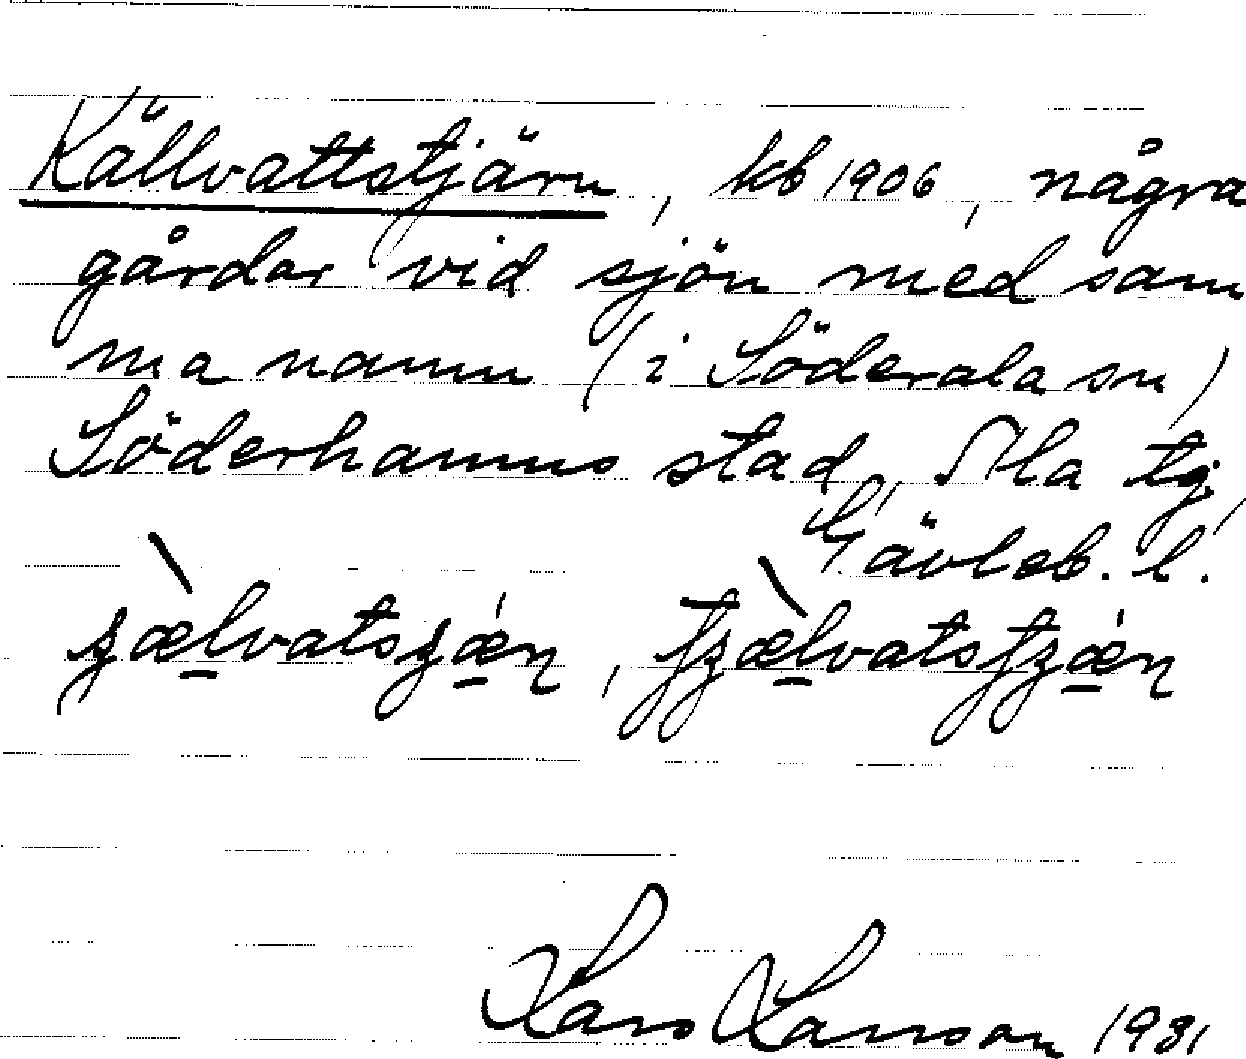 Källvattstjärn, kb 1906, några
gårdar vid sjön med sam
ma namn (i Söderala sn)
Söderhamns stad, Ala tg,
Gävleb. l.
Lars Larsson 1931